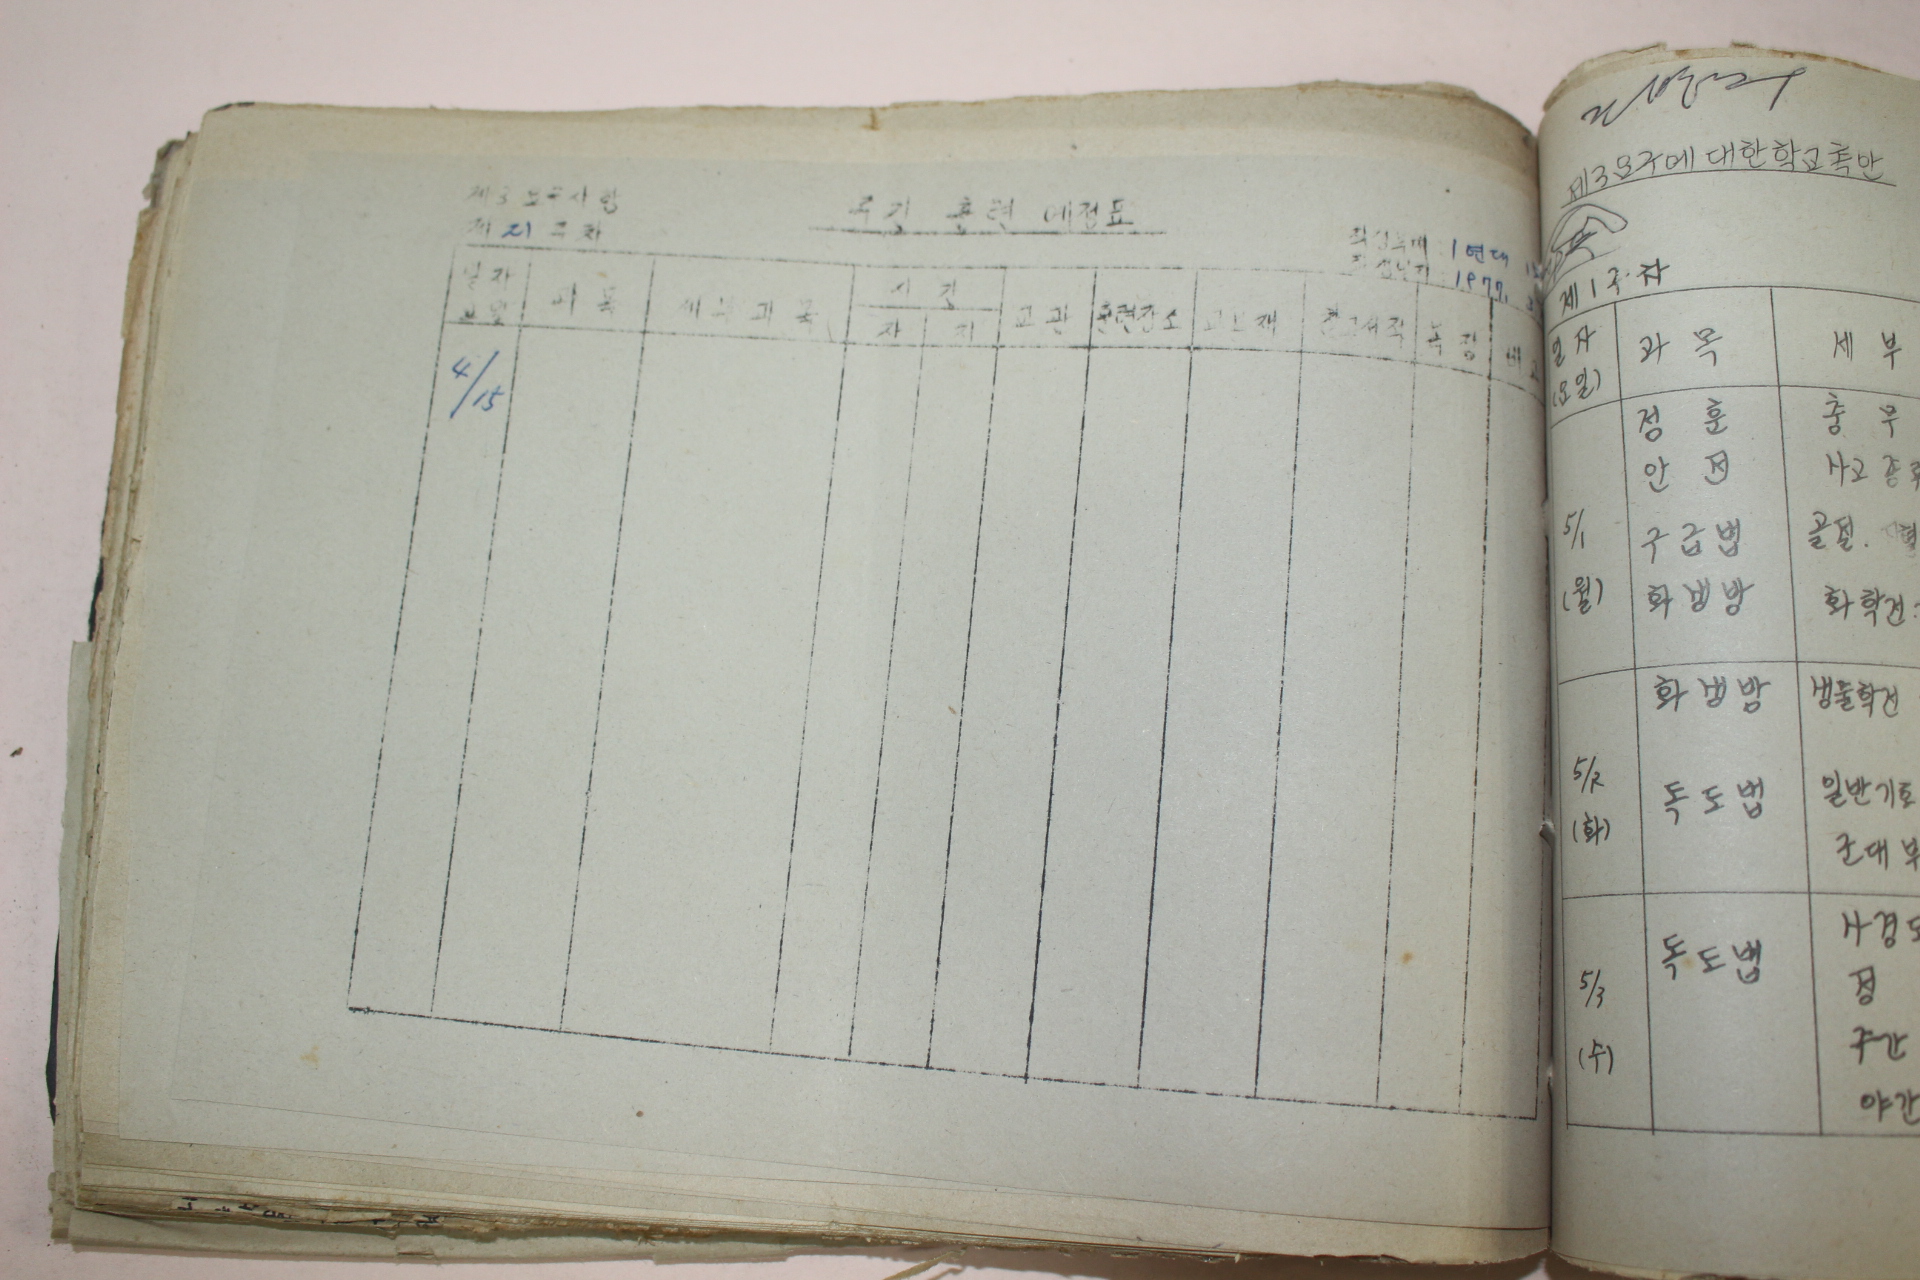 제3요구사항
제 21 주차
주간 훈련 예정표
작성부대 : 1연대
작성일자 : 1977.
일자
요일
과 목
세 부 과 목
시 간
자 지
교 관
훈련장소
교보재
참고서적
복장
비고
4/15
제3요구에 대한 학교측안
제 1 주차
일 자
(요일)
과 목
세 부
5/1
(월)
정 훈
충 무
안 전
사고
구급법
골절.
화생방
화학전
화생방
생물학전
5/2
(화)
독도법
일반기호
군대부
5/3
(수)
독도법
사경도
정
주간
야간